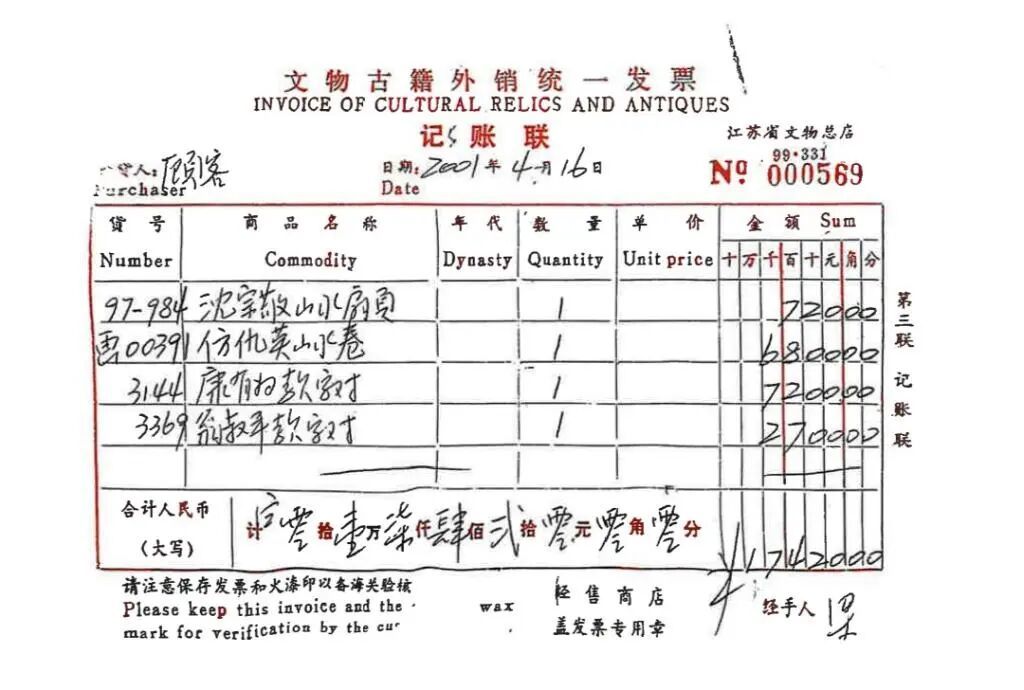 文物古籍外销统一发票
INVOICE OF CULTURAL RELICS AND ANTIQUES
记账联
江苏省文物总店
货人: 顾客 日期: 2001年4月16日 99·331
Purchaser Date Nº 000569
货号 商品名称 年代 数量 单价 金额 Sum
Number Commodity Dynasty Quantity Unit price 十万千百十元角分
97-984 沈宗敬山水扇页 1 72000
画00391 仿仇英山水卷 1 680000
3144 康有为款字对 1 720000
3369 翁叔平款字对 1 270000
第三联 记账联
合计人民币
(大写) 计 零拾壹万柒仟肆佰贰拾零元零角零分 ¥1742000
请注意保存发票和火漆印以备海关验核
Please keep this invoice and the wax
mark for verification by the
经售商店
盖发票专用章
经手人